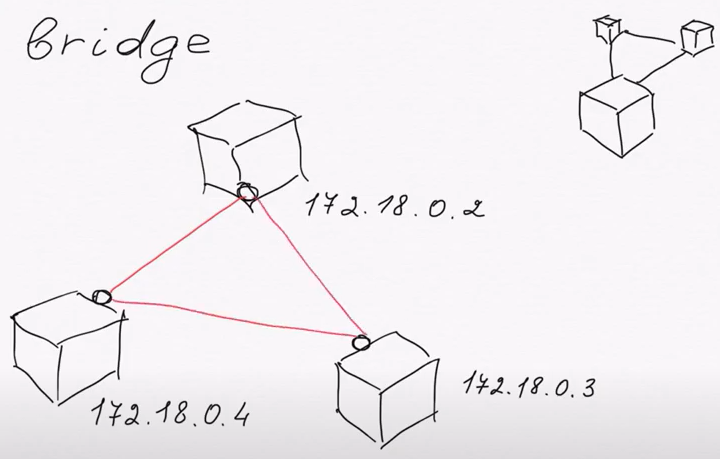 bridge
172.18.0.2
172.18.0.3
172.18.0.4